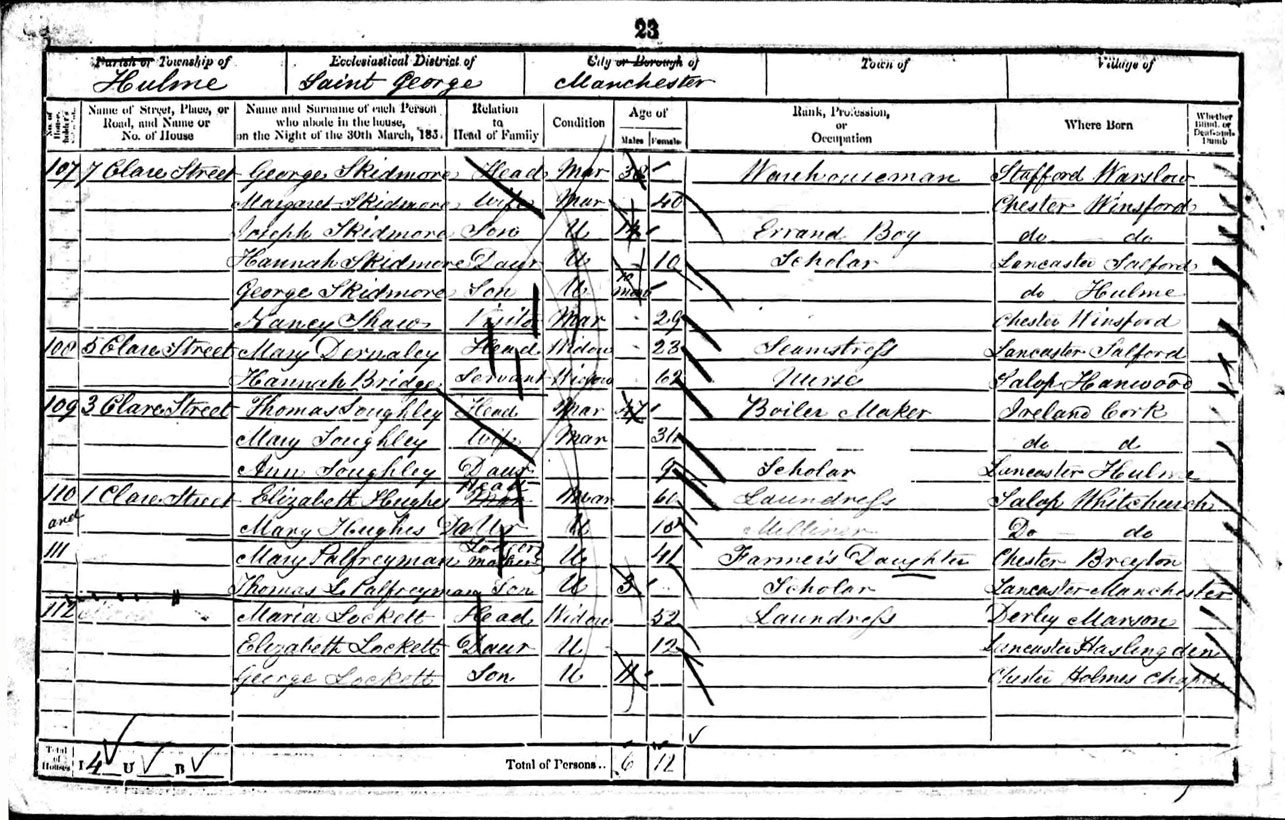 23
Parish or Township of Ecclesiastical District of City or Borough of Town of Village of
Hulme Saint George Manchester
No. of Householder's Schedule Name of Street, Place, or Road, and Name or No. of House Name and Surname of each Person who abode in the house, on the Night of the 30th March, 1851 Relation to Head of Family Condition Age of Males Females Rank, Profession, or Occupation Where Born Whether Blind, or Deaf-and-Dumb
107 7 Clare Street George Skidmore Head Mar 38 Warehouseman Stafford Warslow
Margaret Skidmore Wife Mar 40 Chester Winsford
Joseph Skidmore Son U 14 Errand Boy do do
Hannah Skidmore Daur U 10 Scholar Lancaster Salford
George Skidmore Son U mon do Hulme
Nancy Shaw Visitor Mar 29 Chester Winsford
108 5 Clare Street Mary Dernaley Head Widow 23 Seamstress Lancaster Salford
Hannah Bridge Servant Widow 62 Nurse Salop Hanwood
109 3 Clare Street Thomas Soughley Head Mar 47 Boiler Maker Ireland Cork
Mary Soughley Wife Mar 31 do d
Ann Soughley Daur 9 Scholar Lancaster Hulme
110 1 Clare Street Elizabeth Hughes Head Mar Mar 60 Laundress Salop Whitchurch
and Mary Hughes Daur U 18 Milliner Do do
111 Mary Palfreyman Lodger U 41 Farmer's Daughter Chester
Thomas L Palfreyman Son U 3 Scholar Lancaster Manchester
112 Maria Lockett Head Widow 52 Laundress Derby Marson
Elizabeth Lockett Daur U 12 Lancaster Haslingden
George Lockett Son U 11 Chester Holmes Chapel
Total of Houses I 4 U B Total of Persons.. 6 12